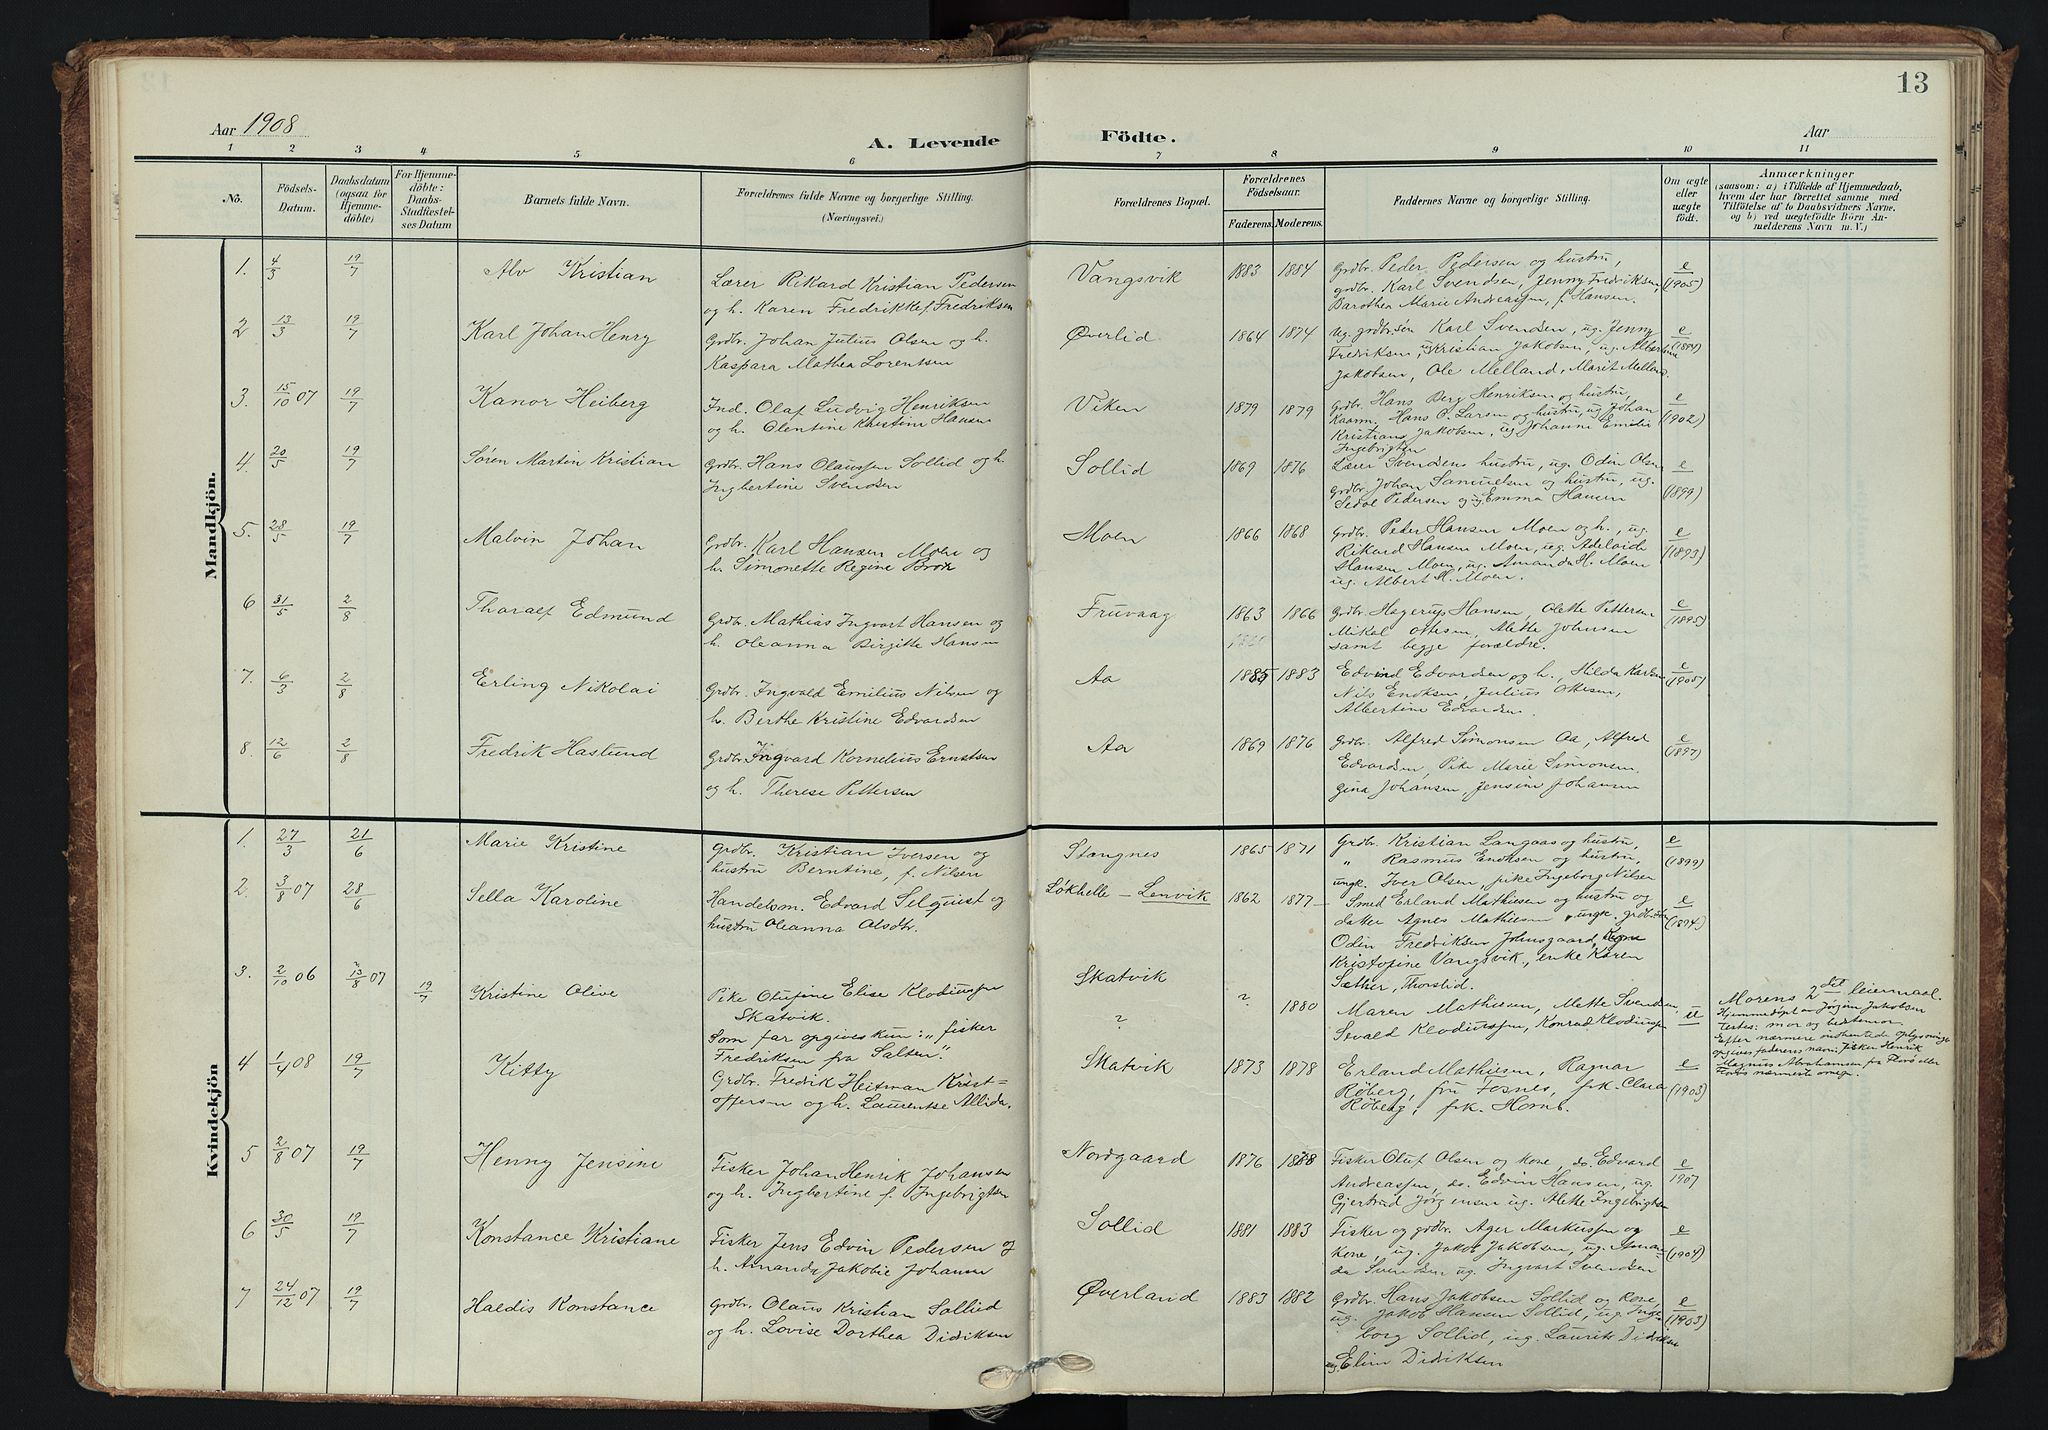 13
Aar 1908
A. Levende Födte.
Aar
1 2 3 4 5 6 7 8 9 10 11
No.
Födsels-
Datum.
Daabsdatum
(ogsaa for
Hjemme-
döbte)
For Hjemme-
döbte:
Daabs-
Stadfæstel-
ses Datum
Barnets fulde Navn.
Forældrenes fulde Navne og borgerlige Stilling.
(Næringsvei.)
Forældrenes Bopæl.
Forældrenes
Födselsaar.
Faderens. Moderens.
Faddernes Navne og borgerlige Stilling.
Om ægte
eller
uægte
födt.
Anmærkninger
(saasom: a) i Tilfælde af Hjemmedaab,
hvem der har forrettet samme med
Tilföielse af to Daabsvidners Navne,
og b) ved uægtefödte Börn An-
melderens Navn m. V.)
Mandkjön.
1. 4/3 19/7 Alv Kristian
Lærer Rikard Kristian Pedersen
og h. Karen Fredrikke f. Fredriksen
Vangsvik 1883 1884
Grdbr. Peder Pedersen og hustru,
grdbr. Karl Svendsen, Jenny Fredriksen,
Dorothea Marie Andreassen, f. Hansen.
e (1905)
2 13/3 19/7 Karl Johan Henry
Grdbr. Johan Julius Olsen og h.
Kaspara Mathea Lorentsen
Øverlid 1864 1874
Ug. grdbrsøn Karl Svendsen, ug. Jenny
Fredriksen, ug. Kristian Jakobsen, ug. Albertine
Jakobsen, Ole Melland, Marit Melland.
e
3. 15/10 07 19/7 Kanor Heiberg
Ind. Olaf Ludvig Henriksen
og h. Olentine Kristine Hansen
Viken 1879 1879
Grdbr. Hans Berg Henriksen og hustru,
Kaarm. Hans O. Larsen og hustru, ug. Johan
Kristians Jakobsen, ug. Johanne Emelie
Ingebrigtsen
e (1902)
4. 20/5 19/7 Sören Martin Kristian
Grdbr. Hans Olaussen Sollid og h.
Ingbertine Svendsen
Sollid 1869 1876
Lærer Svendsens hustru, ug. Odin Olsen
grdbr. Johan Samuelsen og hustru, ug.
Pedersen og ug. Emma Hansen
e (1899)
5. 28/5 19/7 Malvin Johan
Grdbr. Karl Hansen Moen og
h. Simonette Regine Brox
Moen 1866 1868
Grdbr. Peder Hansen Moen og h., ug.
Rikard Hansen Moen, ug. Adelaide
Hansen Moen, ug. Amanda H. Moen
ug. Albert H. Moen.
e (1893)
6 31/5 2/8 Thoralf Edmund
Grdbr. Mathias Ingvart Hansen og
h. Oleanna Birgitte Hansen
Fruvaag 1863 1866
Grdbr. Hagerup Hansen, Olette Pettersen
Mikal Ottesen, Alette Johnsen
samt begge forældre.
e (1895)
7. 6/3 2/8 Erling Nikolai
Grdbr. Ingvald Emilius Nilsen og
h. Berthe Kristine Edvardsen
Aa 1885 1883
Edvind Edvardsen og h., Hilda Karlsen
Nils Enoksen, Julius Ottesen,
Albertine Edvardsen.
e (1905)
8. 12/6 2/8 Fredrik Haslund
Grdbr. Ingvard Kornelius Ernstsen
og h. Therese Pettersen
Aa 1869 1876
Grdbr. Alfred Simonsen Aa, Alfred
Edvardsen, Pike Marie Simonsen,
Gina Johansen, Jensine Johansen
e (1897)
Kvindekjön
1. 27/3 21/6 Marie Kristine
Grdbr. Kristian Iversen og
hustru Berntine, f. Nilsen
Stangnes 1865 1871
Grdbr. Kristian Langaas og hustru,
" Rasmus Enoksen og hustru,
ungk. Iver Olsen, pike Ingeborg Nilsen
e (1899)
2. 3/8 07 28/6 Sella Karoline
Handelsm. Edvard Selquist og
hustru Oleanna Olsdtr.
Løkhelle – Lenvik 1862 1877
Smed Erland Mathisen og hustru og
datter Agnes Mathisen, ungk. grdbr.
Odin Fredriksen Johnsgaard,
Kristofine Vangsvik, enke Karen
Sæther, Thorslid.
e (1894)
3. 2/10 06 13/8 07 19/7 Kristine Olive
Pike Olufine Elise Klodiussen
Skatvik.
Som far opgives kun: "fisker
Fredriksen fra Salten".
Skatvik
?
? 1880
Maren Mathisen, Mette Svendsen,
Sevald Klodiussen, Konrad Klodiussen
u
Morens 2det leiermaal.
Hjemmedöpt av Jørgine Jakobsen
Testes: mor og bestemor.
Efter nærmere indhentede oplysninger
opgives faderens navn: fisker Henrik
Magnus Abrahamsen fra Florø eller
Florøs nærmeste omegn.
4 1/4 08 19/7 Kitty
Grdbr. Fredrik Heitman Krist=
offersen og h. Laurentse Allida.
Skatvik 1873 1878
Erland Mathisen, Ragnar
Röberg, fru Fosnes, frk. Clara
Röberg, frk. Hornb.
e (1903)
5 2/8 07 19/7 Henny Jensine
Fisker Johan Henrik Johansen
og h. Ingbertine f. Ingebrigtsen
Nordgaard 1876 1888
Fisker Oluf Olsen og kone, do. Edvard
Andreassen, do. Edvin Hansen, ug.
Gjertrud Jörgensen ug. Alette Ingebrigtsen
e 1907
6 30/5 19/7 Konstance Kristiane
Fisker Jens Edvin Pedersen og
h. Amanda Jakobie Johansen
Sollid 1881 1883
Fisker og grdbr. Ager Markussen og
kone, ug. Jakob Jakobsen, ug. Aman-
da Svendsen ug. Ingvart Svendsen
e (1904)
7 24/12 07 19/7 Haldis Konstance
Grdbr. Olaus Kristian Sollid
og h. Lovise Dorthea Didriksen
Øverland 1883 1882
Grdbr. Hans Jakobsen Sollid og kone,
ug. Jakob Hansen Sollid, ug. Inge-
borg Sollid, ug. Laurits Didriksen
ug. Elin Didriksen
e (1903)